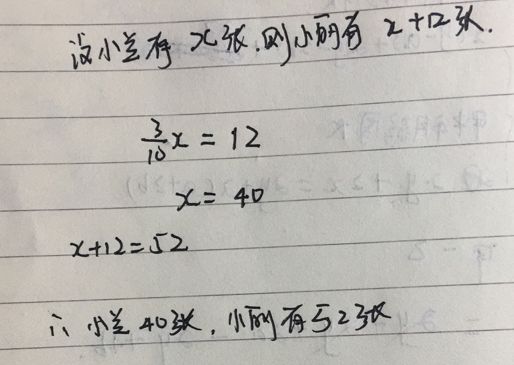 设小兰有 x张,则小丽有 x+12张.
3/10 x = 12
x = 40
x+12=52
∴ 小兰 40张,小丽有52张